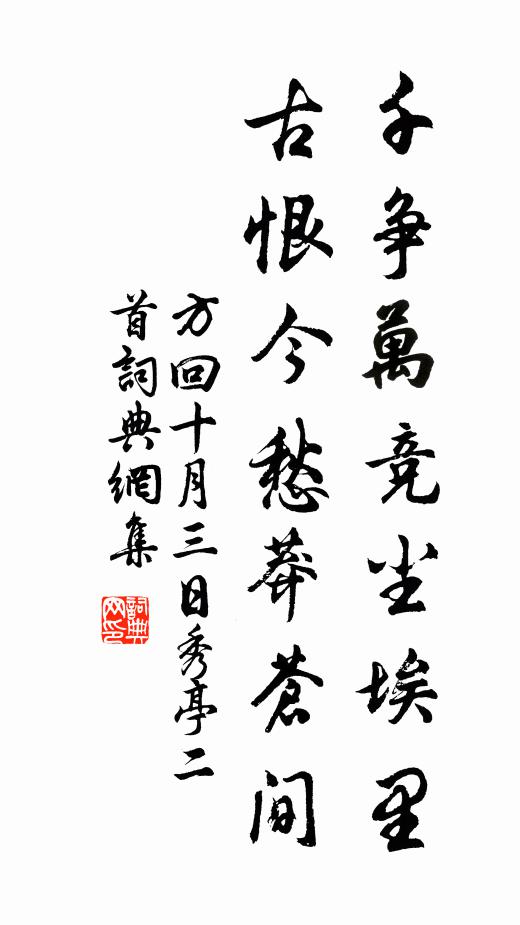 千争萬竞尘埃里
古恨今愁莽蒼间
方回十月三日秀亭二
首詞典網集
詞典
网印